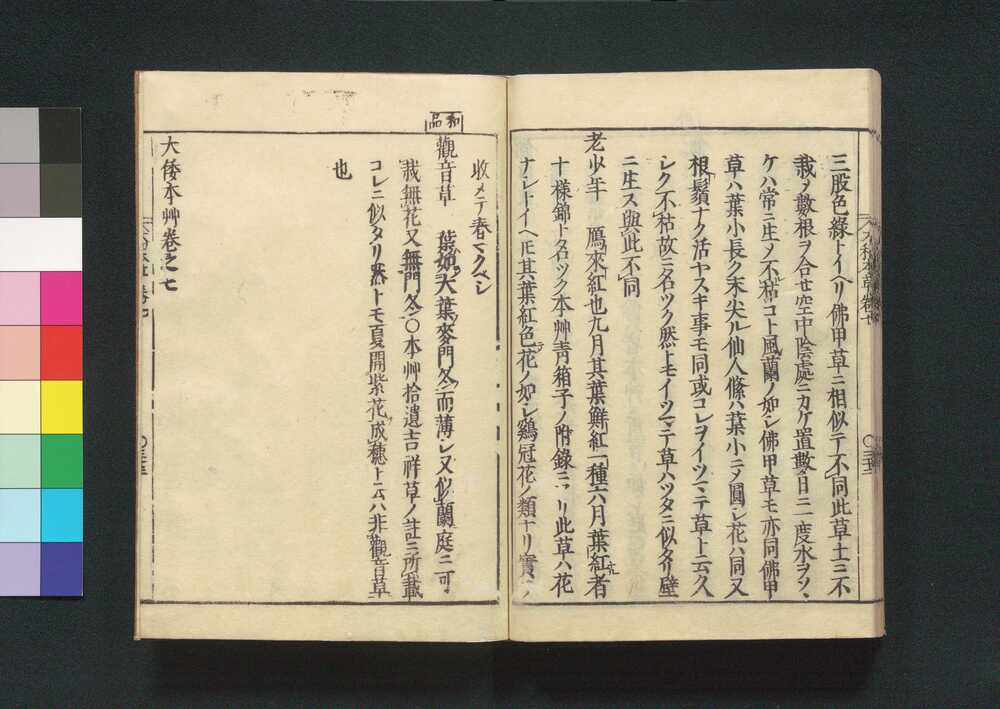 三股色綠トイヘリ佛甲草ニ相似テ不同此草土ニ不
栽ヲ數根ヲ合セ空中陰處ニカケ置數日ニ一度水ヲソヽ
ケハ常ニ生メ不枯コト風蘭ノ如シ佛甲草モ亦同佛甲
草ハ葉小長ク末尖ル仙人絛ハ葉小ニメ圓シ花ハ同又
根鬚ナク活ヤスキ事モ同或コレヲイツマテ草ト云久
シク不枯故ニ名ツク然トモイツマテ草ハツタニ似タリ壁
ニ生ス與此不同
老少年 鴈來紅也九月其葉鮮紅一種六月葉紅者
十樣錦ト名ツク本艸靑箱子ノ附錄ニアリ此草ハ花
ナシトイヘ𪜈其葉紅色花ノ如シ鷄冠花ノ類ナリ實ヲ
收メテ春マクベシ
和品
觀音草 葉如大葉麥門冬而薄シ又似蘭庭ニ可
栽無花又無門冬○本艸拾遺吉祥草ノ註ニ所載
コレニ似タリ然トモ夏開紫花成穗ト云ハ非觀音草
也
大倭本艸卷之七